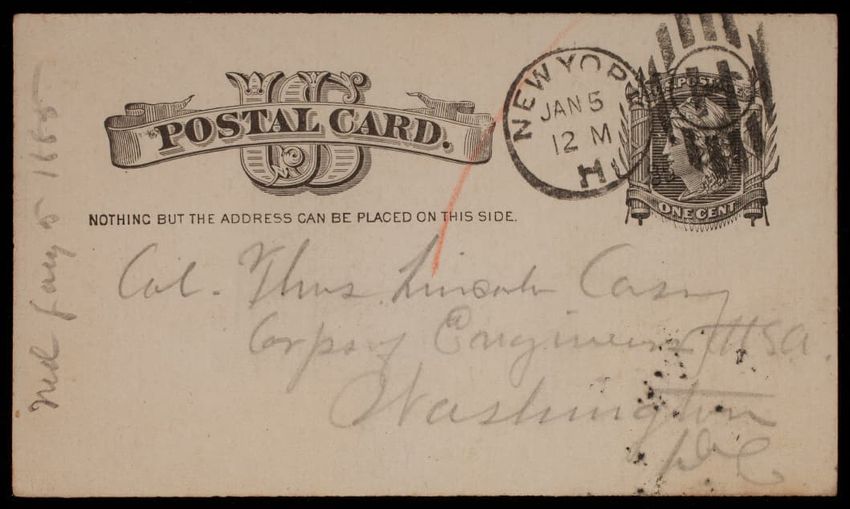 US
POSTAL CARD.
NOTHING BUT THE ADDRESS CAN BE PLACED ON THIS SIDE.
NEW YORK
JAN 5
12 M
H
U.S. POSTAGE
ONE CENT
Col. Thos Lincoln Casey
Corps of Engineers USA.
Washington
D C
Recd Jany 5 1885